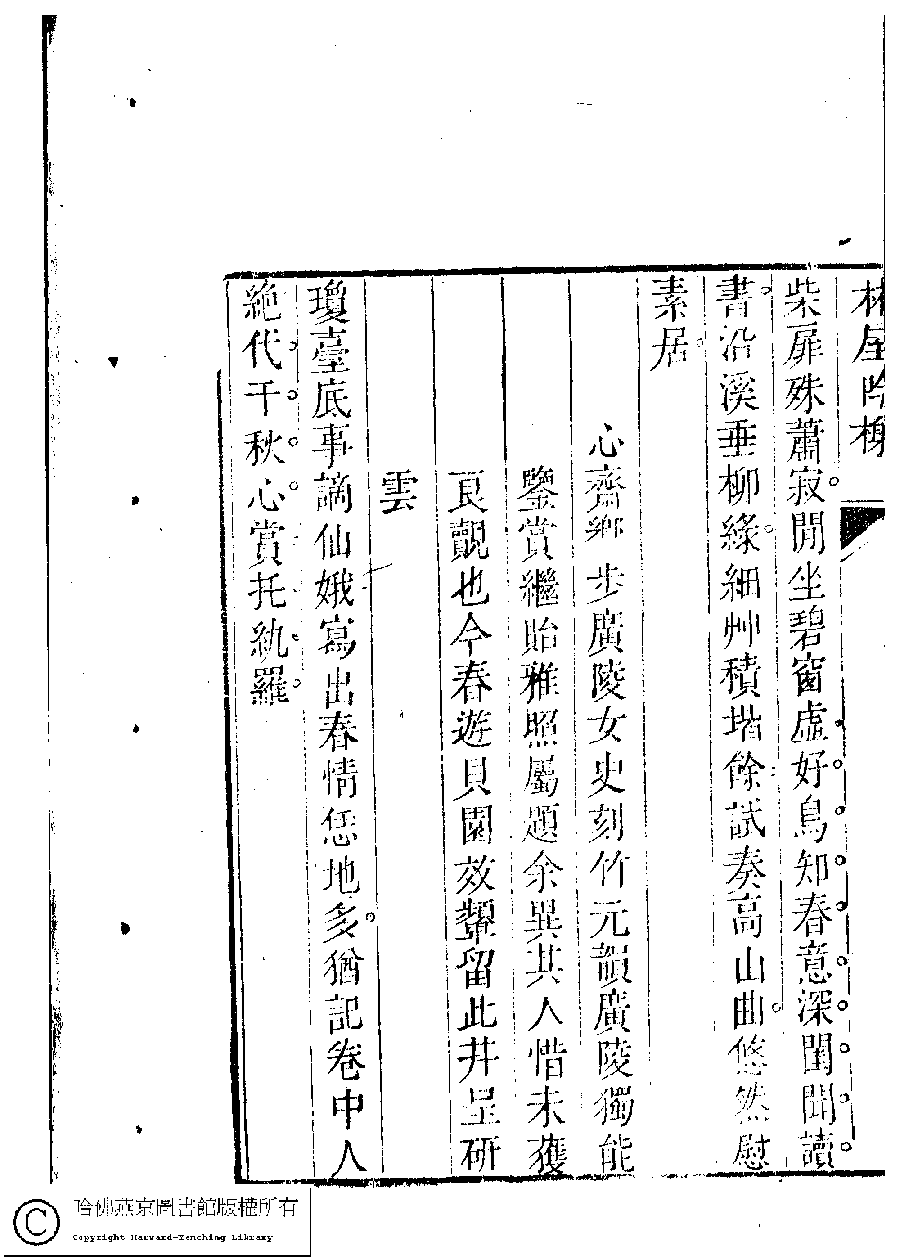 林屋吟榭
柴扉殊蕭寂。閒坐碧窗虛。好鳥知春意。深閨聞讀
書。沿溪垂柳綠。細艸積堦餘。試奏高山曲。悠然慰
素居。
心齋鄉步廣陵女史刻竹元韻廣陵獨能
鑒賞繼貽雅照屬題余異其人惜未獲
良覿也今春遊貝園效顰留此幷呈硏
雲
瓊臺底事謫仙娥寫出春情恁地多。猶記卷中人
絕代。千。秋。心。賞托紈。羅。
哈佛燕京圖書館版權所有
Copyright Harvard-Yenching Library